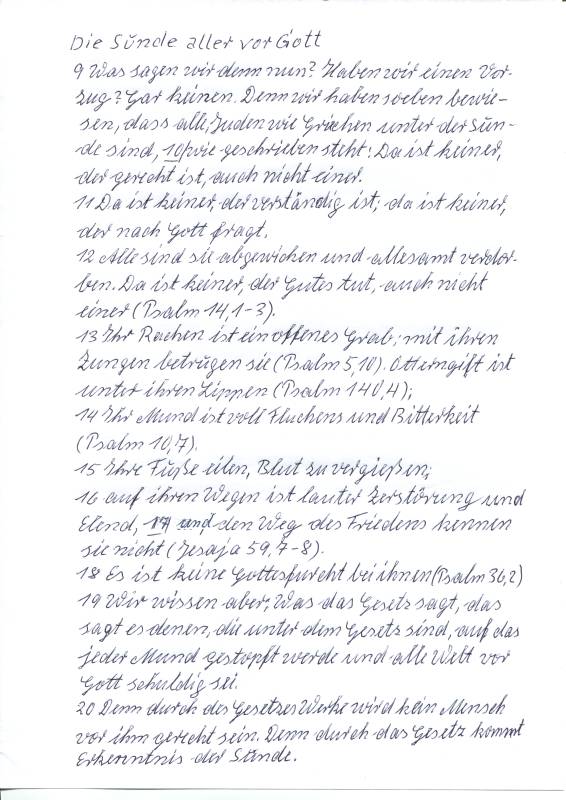 Die Sünde aller vor Gott
9 Was sagen wir denn nun? Haben wir einen Vor-
zug? Gar keinen. Denn wir haben soeben bewie-
sen, dass alle, Juden wie Griechen unter der Sün-
de sind, 10 wie geschrieben steht: Da ist keiner,
der gerecht ist, auch nicht einer.
11 Da ist keiner, der verständig ist; da ist keiner,
der nach Gott fragt.
12 Alle sind sie abgewichen und allesamt verdor-
ben. Da ist keiner, der Gutes tut, auch nicht
einer (Psalm 14,1-3).
13 Ihr Rachen ist ein offenes Grab; mit ihren
Zungen betrügen sie (Psalm 5,10). Otterngift ist
unter ihren Lippen (Psalm 140,4);
14 Ihr Mund ist voll Fluchens und Bitterkeit
(Psalm 10,7).
15 Ihre Füße eilen, Blut zu vergießen;
16 auf ihren Wegen ist lauter Zerstörung und
Elend, 17 und den Weg des Friedens kennen
sie nicht (Jesaja 59,7-8).
18 Es ist keine Gottesfurcht bei ihnen (Psalm 36,2)
19 Wir wissen aber: Was das Gesetz sagt, das
sagt es denen, die unter dem Gesetz sind, auf das
jeder Mund gestopft werde und alle Welt vor
Gott schuldig sei.
20 Denn durch des Gesetzes Werke wird kein Mensch
vor ihm gerecht sein. Denn durch das Gesetz kommt
Erkenntnis der Sünde.